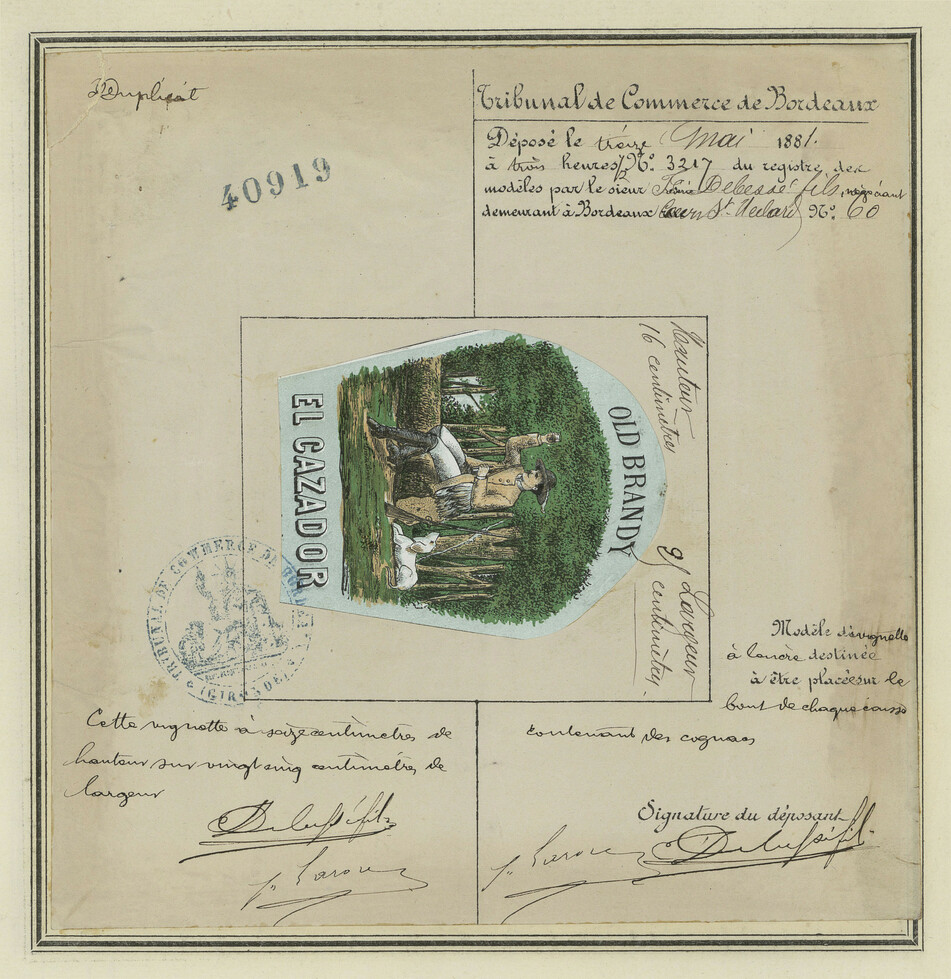 Duplicat
40919
Tribunal de Commerce de Bordeaux
Déposé le treize Mai 1881.
à trois heures ½ No. 3217 du registre des
modèles par le sieur Debessé fils, négociant
demeurant à Bordeaux Cours St No. 60
Hauteur
16 centimètres
25 Largeur
centimètres.
OLD BRANDY
EL CAZADOR
TRIBUNAL DE COMMERCE DE BORDEAUX
(GIRONDE)
Modèle de vignette
à l'encre destinée
à être placée sur le
bout de chaque caisse
contenant des cognacs
Cette vignette à seize centimètres de
hauteur sur vingt cinq centimètres de
largeur
Signature du déposant